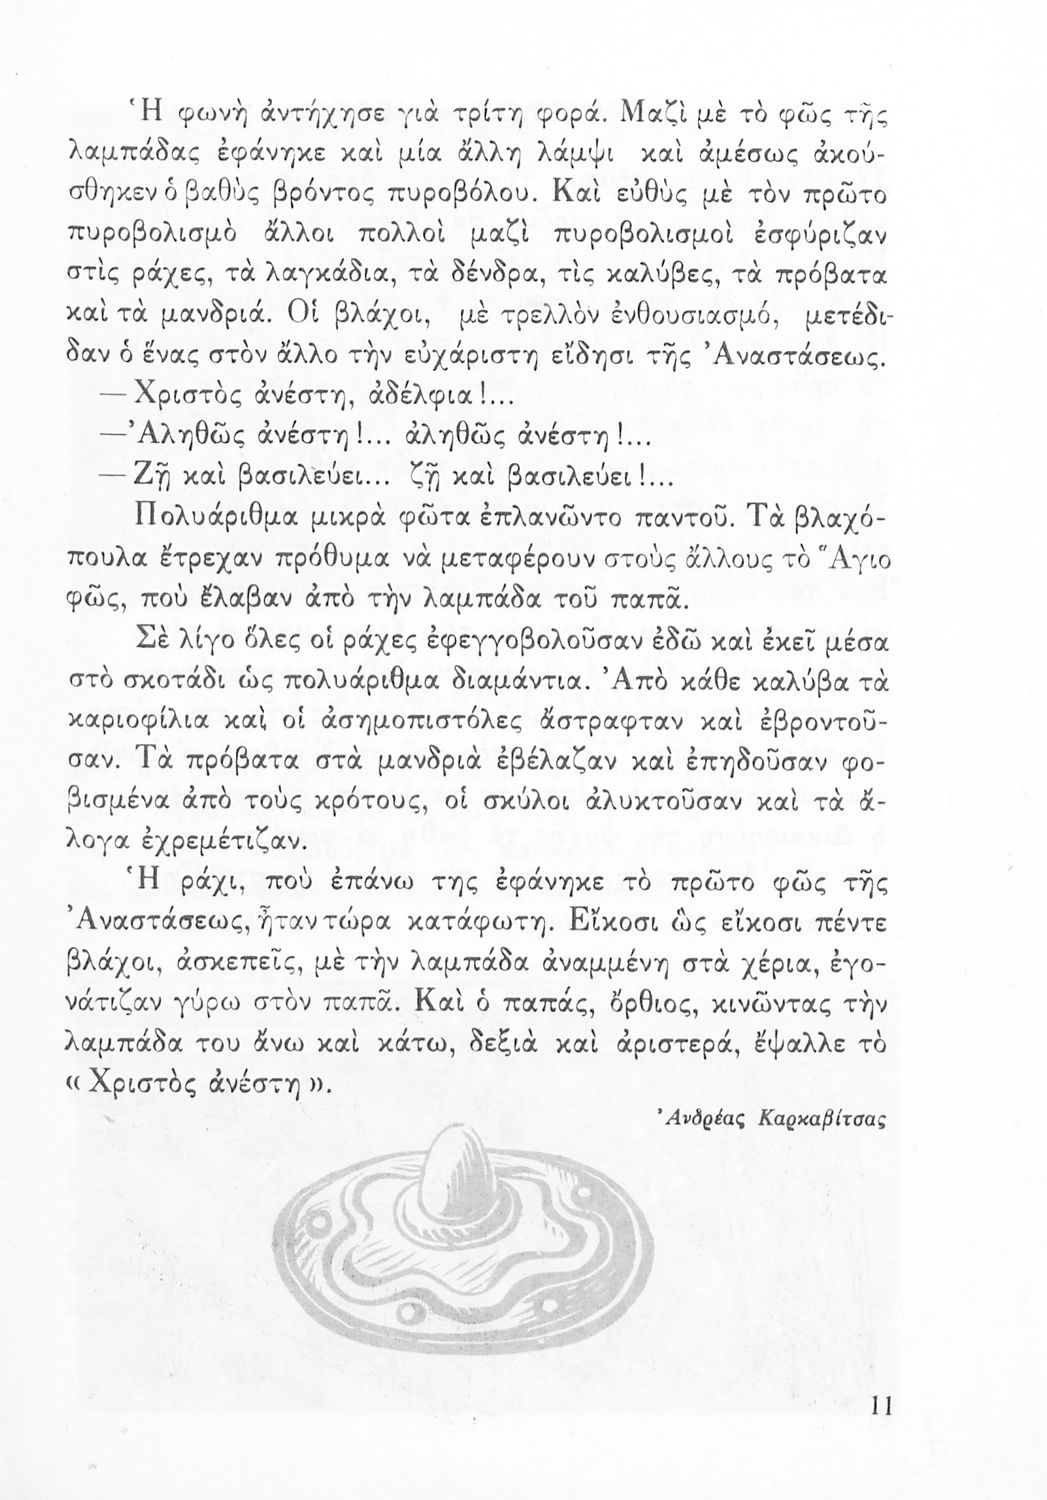 Ἡ φωνὴ ἀντήχησε γιὰ τρίτη φορά. Μαζὶ μὲ τὸ φῶς τῆς
λαμπάδας ἐφάνηκε καὶ μία ἄλλη λάμψι καὶ ἀμέσως ἀκού-
σθηκεν ὁ βαθὺς βρόντος πυροβόλου. Καὶ εὐθὺς μὲ τὸν πρῶτο
πυροβολισμὸ ἄλλοι πολλοὶ μαζὶ πυροβολισμοὶ ἐσφύριζαν
στὶς ράχες, τὰ λαγκάδια, τὰ δένδρα, τὶς καλύβες, τὰ πρόβατα
καὶ τὰ μανδριά. Οἱ βλάχοι, μὲ τρελλὸν ἐνθουσιασμό, μετέδι-
δαν ὁ ἕνας στὸν ἄλλο τὴν εὐχάριστη εἴδησι τῆς Ἀναστάσεως.
— Χριστὸς ἀνέστη, ἀδέλφια!...
—Ἀληθῶς ἀνέστη!... ἀληθῶς ἀνέστη!...
— Ζῇ καὶ βασιλεύει... ζῇ καὶ βασιλεύει!...
Πολυάριθμα μικρὰ φῶτα ἐπλανῶντο παντοῦ. Τὰ βλαχό-
πουλα ἔτρεχαν πρόθυμα νὰ μεταφέρουν στοὺς ἄλλους τὸ Ἅγιο
φῶς, ποὺ ἔλαβαν ἀπὸ τὴν λαμπάδα τοῦ παπᾶ.
Σὲ λίγο ὅλες οἱ ράχες ἐφεγγοβολοῦσαν ἐδῶ καὶ ἐκεῖ μέσα
στὸ σκοτάδι ὡς πολυάριθμα διαμάντια. Ἀπὸ κάθε καλύβα τὰ
καριοφίλια καὶ οἱ ἀσημοπιστόλες ἄστραφταν καὶ ἐβροντοῦ-
σαν. Τὰ πρόβατα στὰ μανδριὰ ἐβέλαζαν καὶ ἐπηδοῦσαν φο-
βισμένα ἀπὸ τοὺς κρότους, οἱ σκύλοι ἀλυκτοῦσαν καὶ τὰ ἄ-
λογα ἐχρεμέτιζαν.
Ἡ ράχι, ποὺ ἐπάνω της ἐφάνηκε τὸ πρῶτο φῶς τῆς
Ἀναστάσεως, ἦταν τώρα κατάφωτη. Εἴκοσι ὣς εἴκοσι πέντε
βλάχοι, ἀσκεπεῖς, μὲ τὴν λαμπάδα ἀναμμένη στὰ χέρια, ἐγο-
νάτιζαν γύρω στὸν παπᾶ. Καὶ ὁ παπάς, ὄρθιος, κινῶντας τὴν
λαμπάδα του ἄνω καὶ κάτω, δεξιὰ καὶ ἀριστερά, ἔψαλλε τὸ
« Χριστὸς ἀνέστη ».
Ἀνδρέας Καρκαβίτσας
11